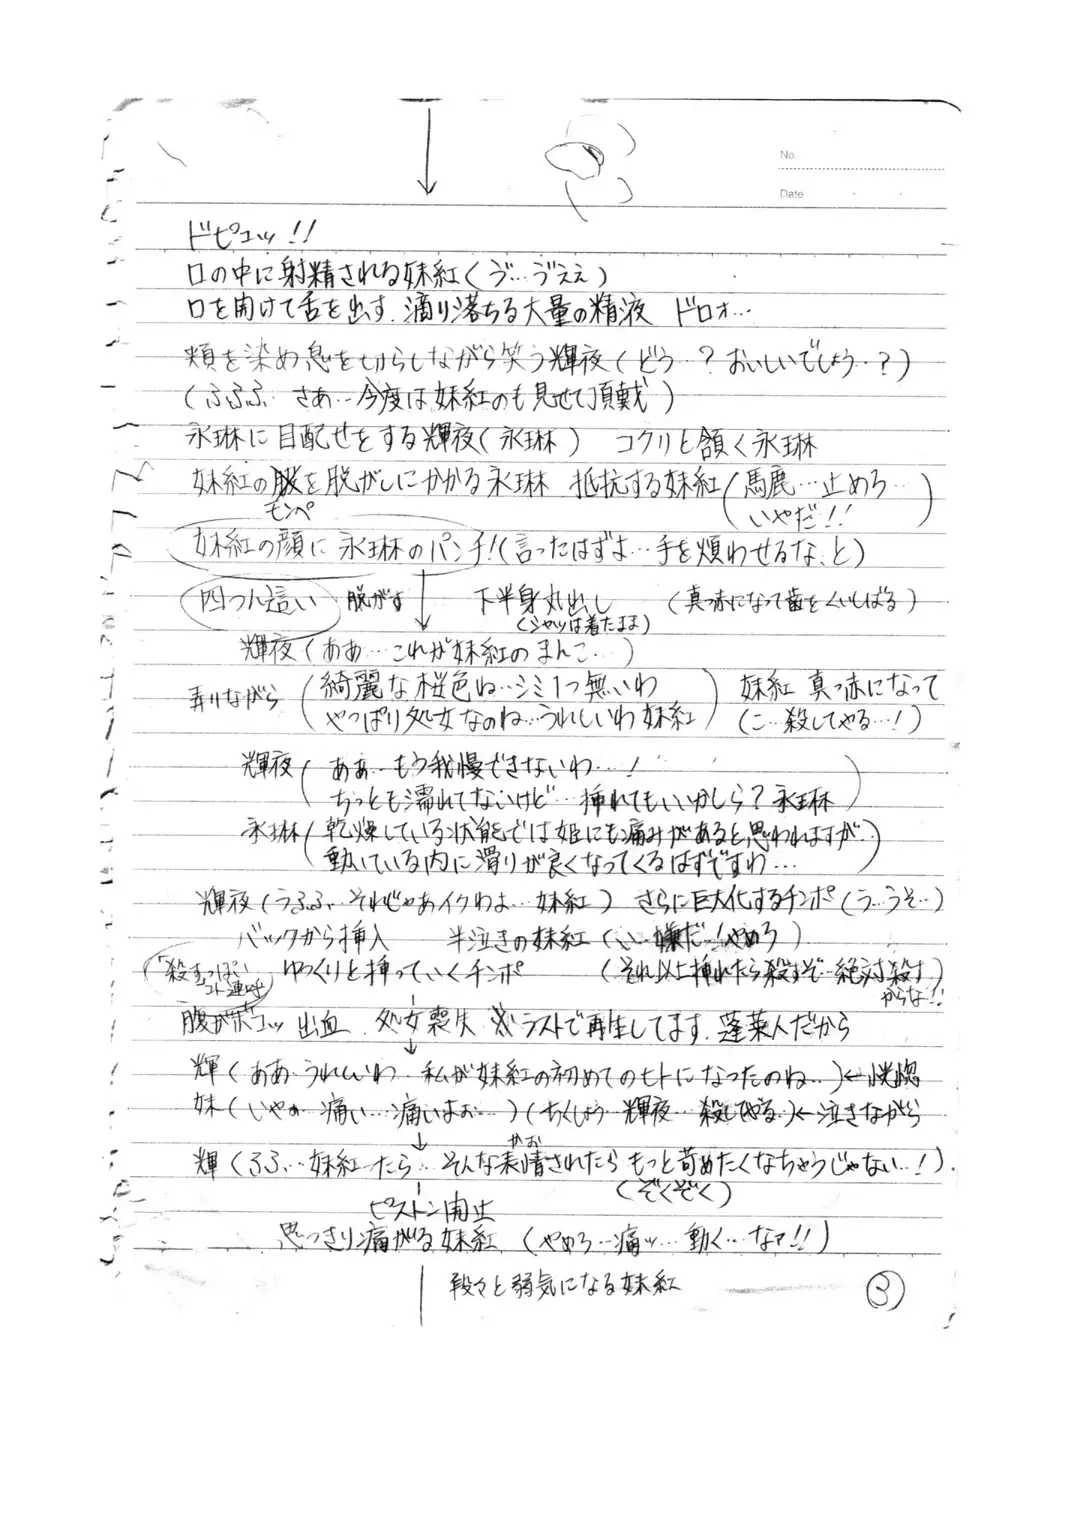 No.
Date
ドピュッ!!
口の中に射精される妹紅(ゔ…ゔえぇ)
口を開けて舌を出す.滴り落ちる大量の精液 ドロォ…
頬を染め息を切らしながら笑う輝夜(どう‥?おいしいでしょう‥?)
(ふふふ さあ…今度は妹紅のも見せて頂戴)
永琳に目配せをする輝夜(永琳) コクリと頷く永琳
妹紅の服を脱がしにかかる永琳 抵抗する妹紅(馬鹿…止めろ…
モンペ いやだ!!)
妹紅の顔に永琳のパンチ!(言ったはずよ…手を煩わせるな、と)
四つん這い 脱がす 下半身丸出し (真っ赤になって歯をくいしばる)
(シャツは着たまま)
輝夜(ああ…これが妹紅のまんこ…)
弄りながら (綺麗な桜色ね…シミ1つ無いわ 妹紅 真っ赤になって
やっぱり処女なのね…うれしいわ妹紅) (こ…殺してやる…!)
輝夜(ああ…もう我慢できないわ…!
ちっとも濡れてないけど…挿れてもいいかしら?永琳)
永琳(乾燥している状態では姫にも痛みがあると思われますが‥
動いている内に滑りが良くなってくるはずですわ…)
輝夜(うふふ…それじゃあイクわよ…妹紅) さらに巨大化するチンポ(う…うそ…)
バックから挿入 半泣きの妹紅(い…嫌だ…!やめろ)
「殺すっぽい コト連呼 ゆっくりと挿っていくチンポ (それ以上挿れたら殺すぞ…絶対殺す
からな!!)
腹がボコッ 出血 処女喪失 ※ラストで再生してます.蓬莱人だから
輝(ああ…うれしいわ…私が妹紅の初めてのヒトになったのね…)←恍惚
妹(いやぁ…痛い…痛いよぉ…)(ちくしょう…輝夜…殺してやる)←泣きながら
輝(ふふ…妹紅ったら…そんな表情されたらもっと苛めたくなちゃうじゃない…!)
かお
(ぞくぞく)
ピストン開止
思っきり痛がる妹紅(やめろ…痛ッ…動く…なァ!!)
段々と弱気になる妹紅
③